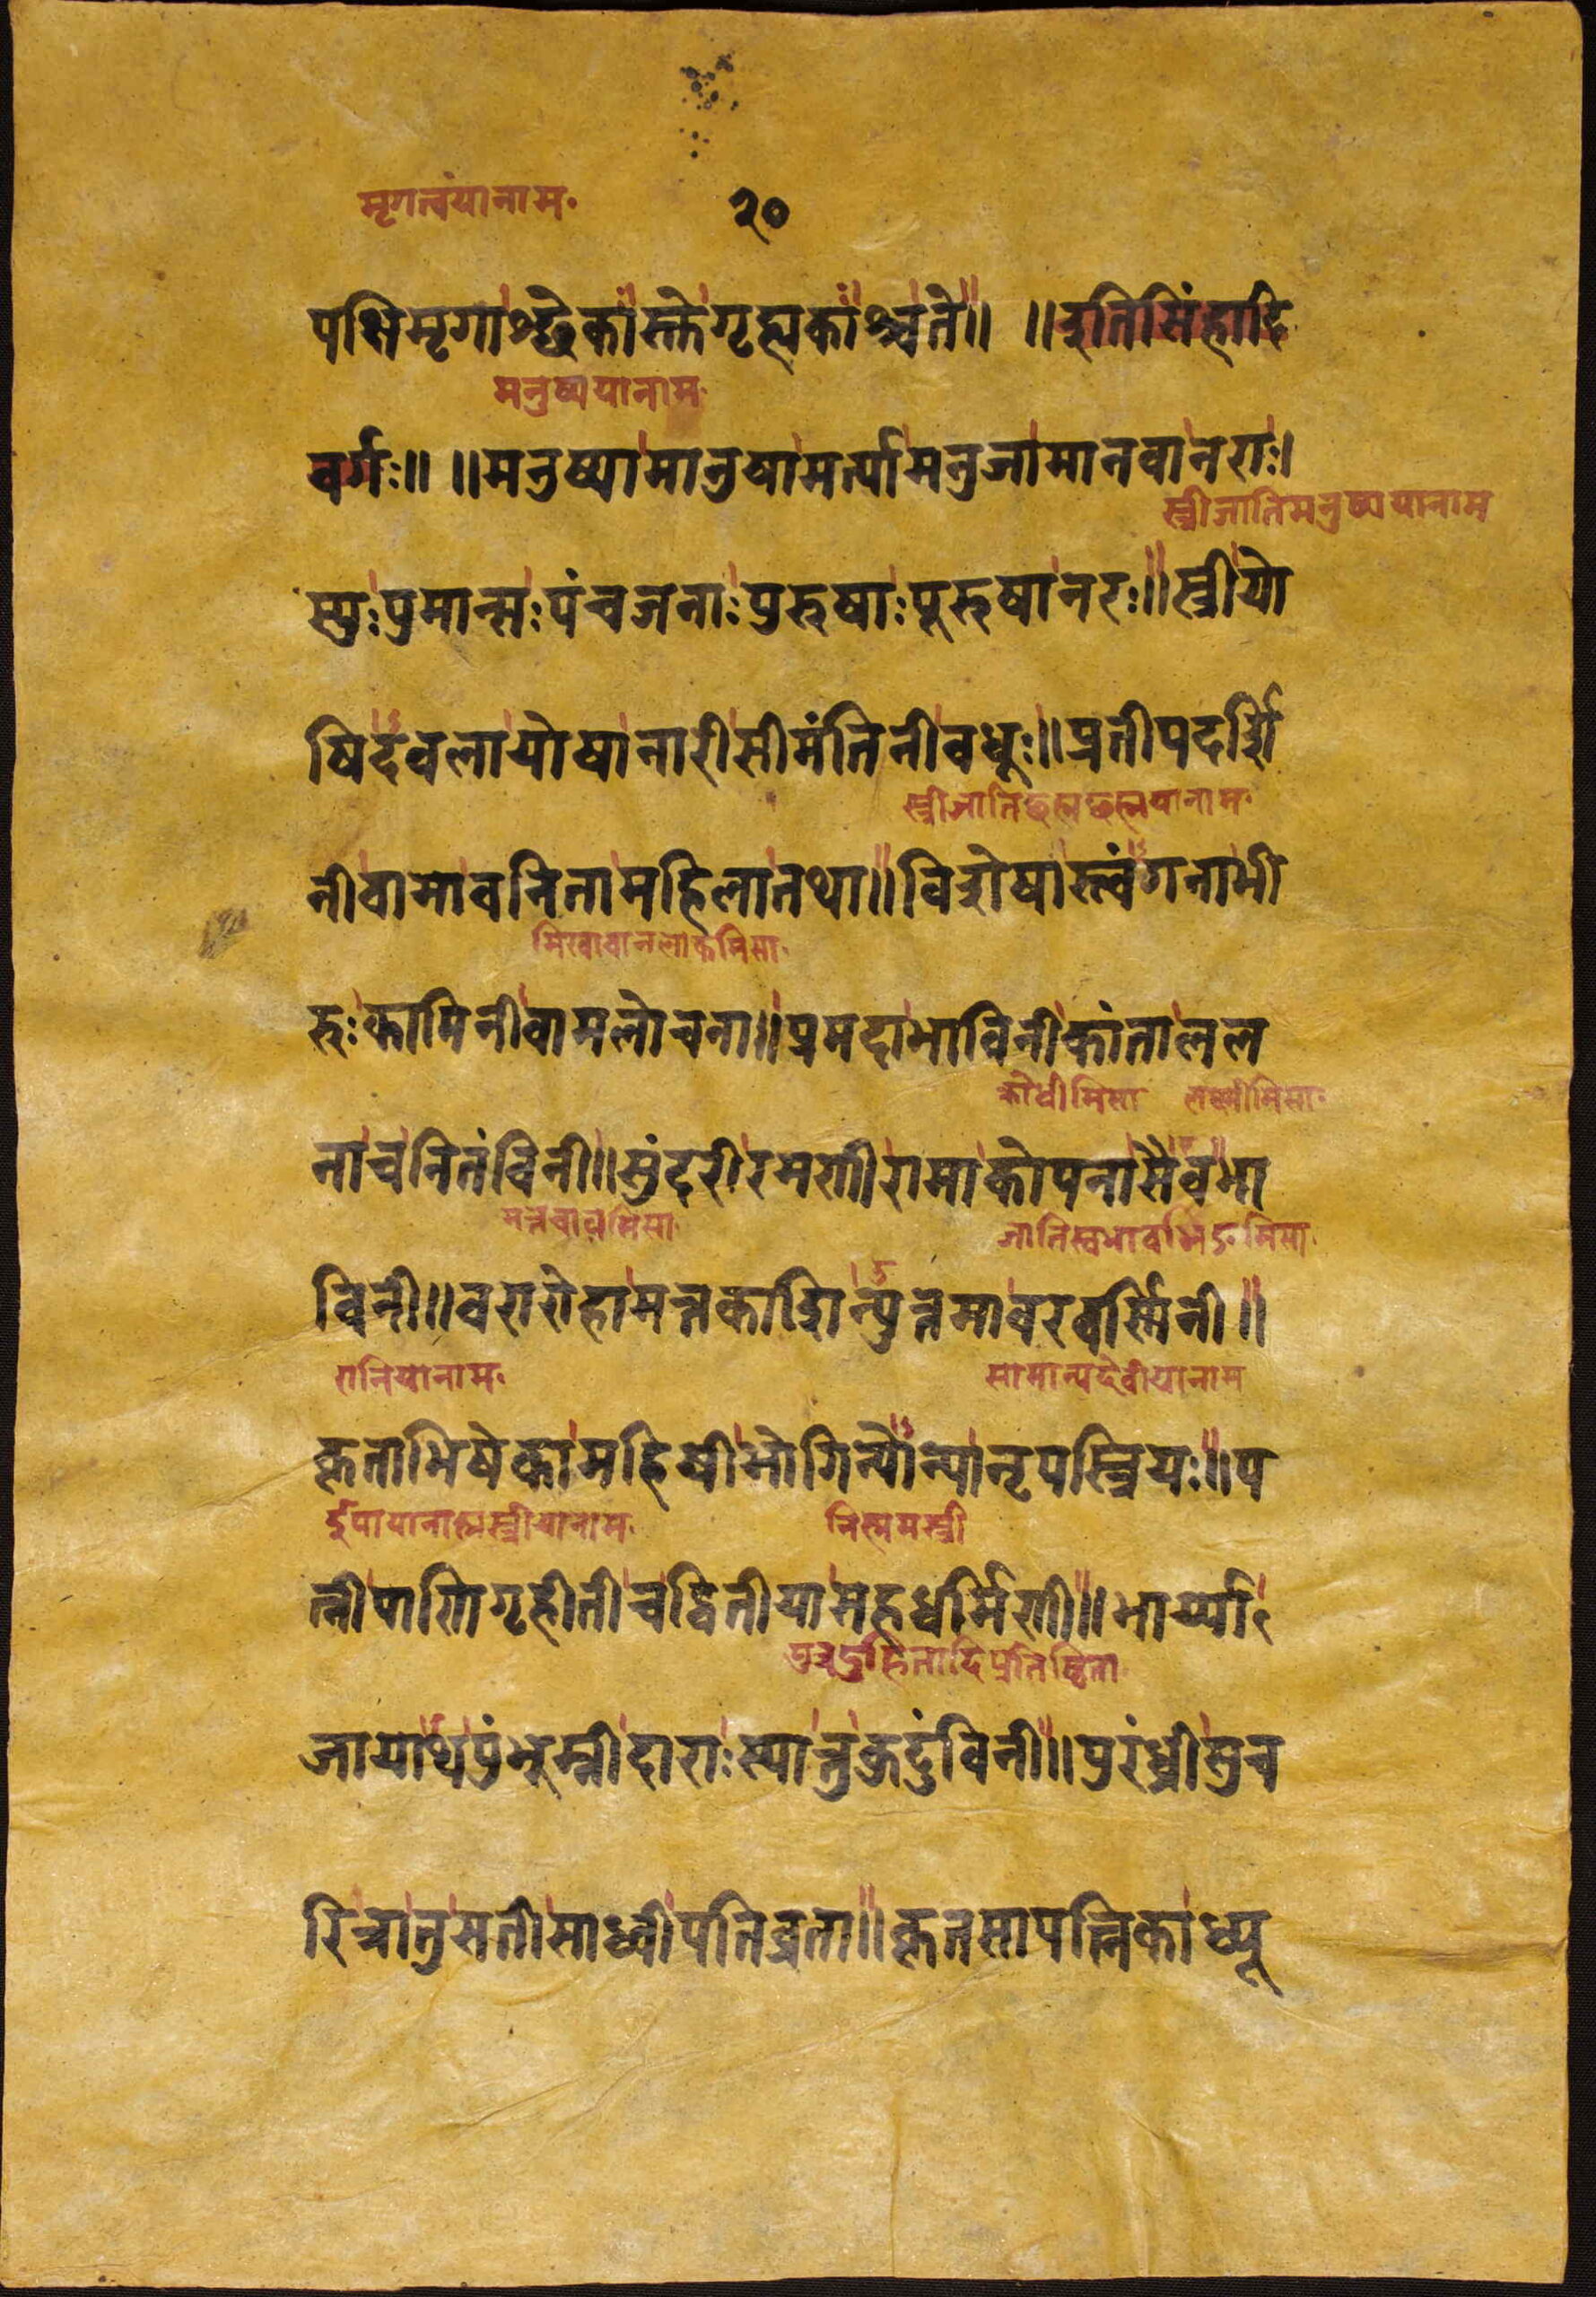 मृगत्वंयानाम॰ २०
पक्षिमृगाश्छेकास्तेगृह्यकाश्चते॥ ॥इतिसिंहादि
मनुष्ययानाम॰
वर्गः॥ ॥मनुष्यामानुषामर्त्यामनुजामानवानराः।
स्त्रीजातिमनुष्ययानाम
स्युःपुमान्सःपंचजनाःपुरुषाःपूरुषानरः॥स्त्रीयो
षिदवलायोषानारीसीमंतिनीवधूः॥प्रतीपदर्शि
स्त्रीजाति
नीवामावनितामहिलातथा॥विशेषास्त्वंगनाभी
मिखावानलाकमिसा॰
रुःकामिनीवामलोचना॥प्रमदाभाविनीकांतालल
क्रोधीमिसा लक्ष्मीमिसा॰
नाचनितंविनी॥सुंदरीरमणीरामाकोपनासैवभा
जातिस्वभावभिंङमिसा॰
विनी॥वरारोहामत्तकाशिन्युत्तमावरवर्स्मिनी॥
रानियानाम॰ सामान्यदेवीयानाम
कृताभिषेकामहिषीभोगिन्योन्यानृपस्त्रियः॥प
नित्मसस्त्री
त्नीपाणिगृहीतीचद्वितीयासहधर्मिणी॥भार्य्या
पुत्रदुहितादिप्रतिष्ठिता
जायाथपुंभूम्नीदाराःस्यात्तुकुटुंविनी॥पुरंध्रीसुच
रित्रातुसतीसाध्वीपतिव्रता॥कृतसापत्निकाध्यू